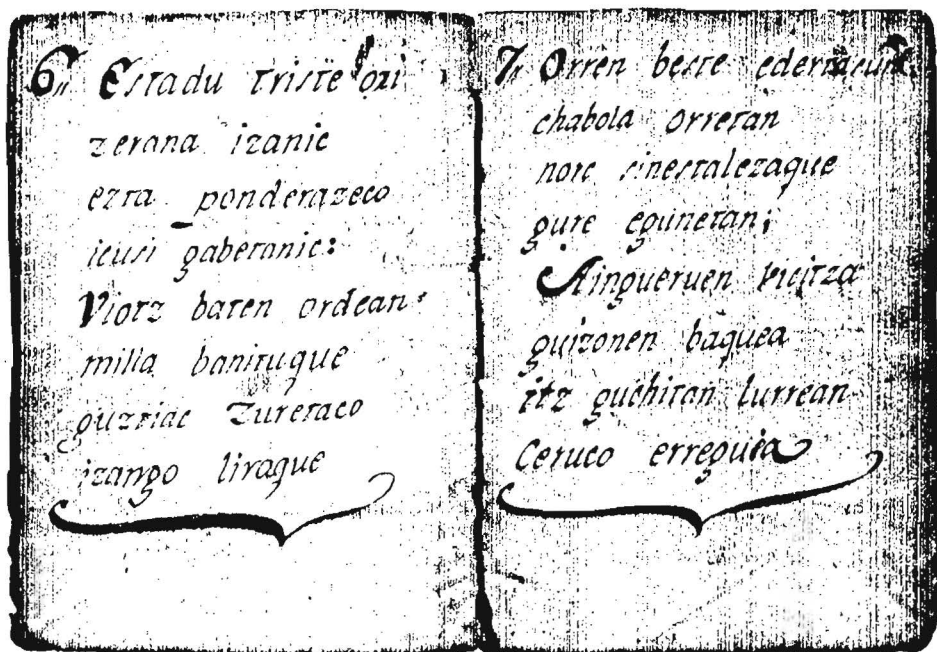 6,, Estadu triste ori
zerana izanic
ezta ponderazeco
icusi gabetanic:
Viotz baten ordean
milla banituque
guztiac Zuretaco
izango liraque
7,, Orren beste edertasun
chabola orretan
norc sinestalezaque
gure egunetan;
Aingueruen vicitza
guizonen baquea
itz guchitan lurrean
Ceruco erreguea